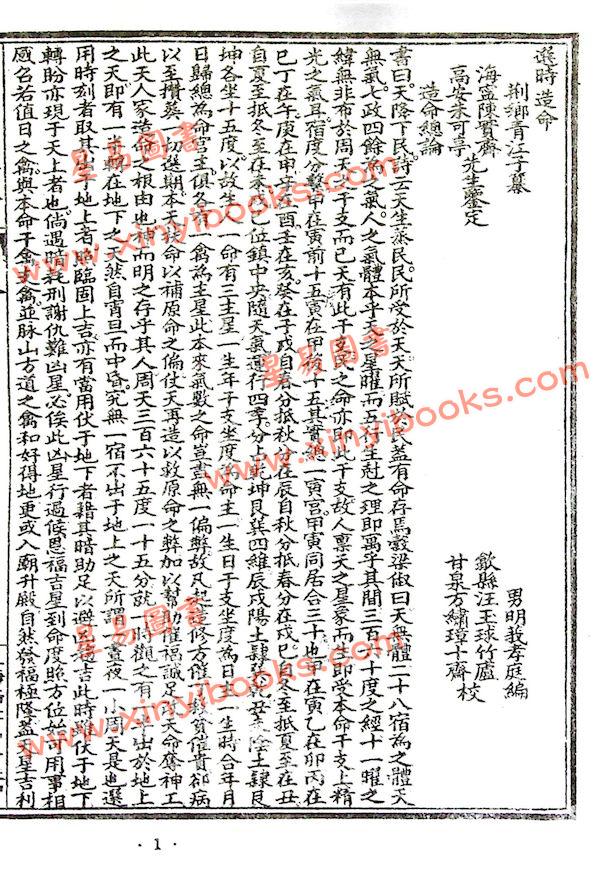 選時造命
荆鄉青江子纂
海寧陳實齋
高安朱可亭
先生鑒定
男明義孝庭編
歙縣汪玉球竹廬
甘泉方繡璋十齋校
造命總論
書曰天降下民詩云天生蒸民民所受於天天所賦於民蓋有命存焉穀梁俶曰天無體二十八宿為之體天
無氣七政四餘為之氣人之氣體本乎天之星曜而五行生尅之理即寓乎其間三百六十度之經十一曜之
緯無非布於周天之干支而已天有此干支民之命亦即此干支故人禀天之星象而生即受本命干支上精
光之氣耳宿度分數甲在寅前十五寅在甲後十五其實總一寅宮甲寅同居合三十也甲在寅乙在卯丙在
巳丁在午庚在申辛在酉壬在亥癸在子戌自春分抵秋分在辰自秋分抵春分在戌巳自冬至抵夏至在丑
自夏至抵冬至在未戊巳位鎮中央隨天氣運行四季分上乾坤艮巽四維辰戌陽土隸乾巽丑未陰土隸艮
坤各坐十五度以故生人一命有三主星一生年干支坐度為命主一生日干支坐度為日主一生時合年月
日歸總為命宮主俱各有一禽為主星此本來氣數之命豈盡無一偏弊故凡起造修方催丁救貧催貴却病
以至攢葬一切選期本天扶命以補原命之偏仗天再造以救原命之弊加以幫助催福誠足立天命奪神工
此天人家造命之根由也神而明之存乎其人周天三百六十五度一十五分就一時觀之有一半出於地上
之天即有一半轉在地下之天然自宵旦而中昏究無一宿不出于地上之天所謂一晝夜一小周天是也選
用時刻者取其出于地上者照臨固上吉亦有當用伏于地下者藉其暗助足以避凶趨吉此時雖伏于地下
轉盼亦現于天上者也倘遇暗耗刑謝仇難凶星必俟此凶星行過候恩福吉星到命度照方位始可用事相
感名若值日之禽與本命干禽支禽並脉山方道之禽和好得地更或入廟升殿自然發福極隆蓋天星吉利
星易圖書
www.xinyibooks.com
星易圖書
www.xinyibooks.com
星易圖書
www.xinyibooks.com
· 1 ·